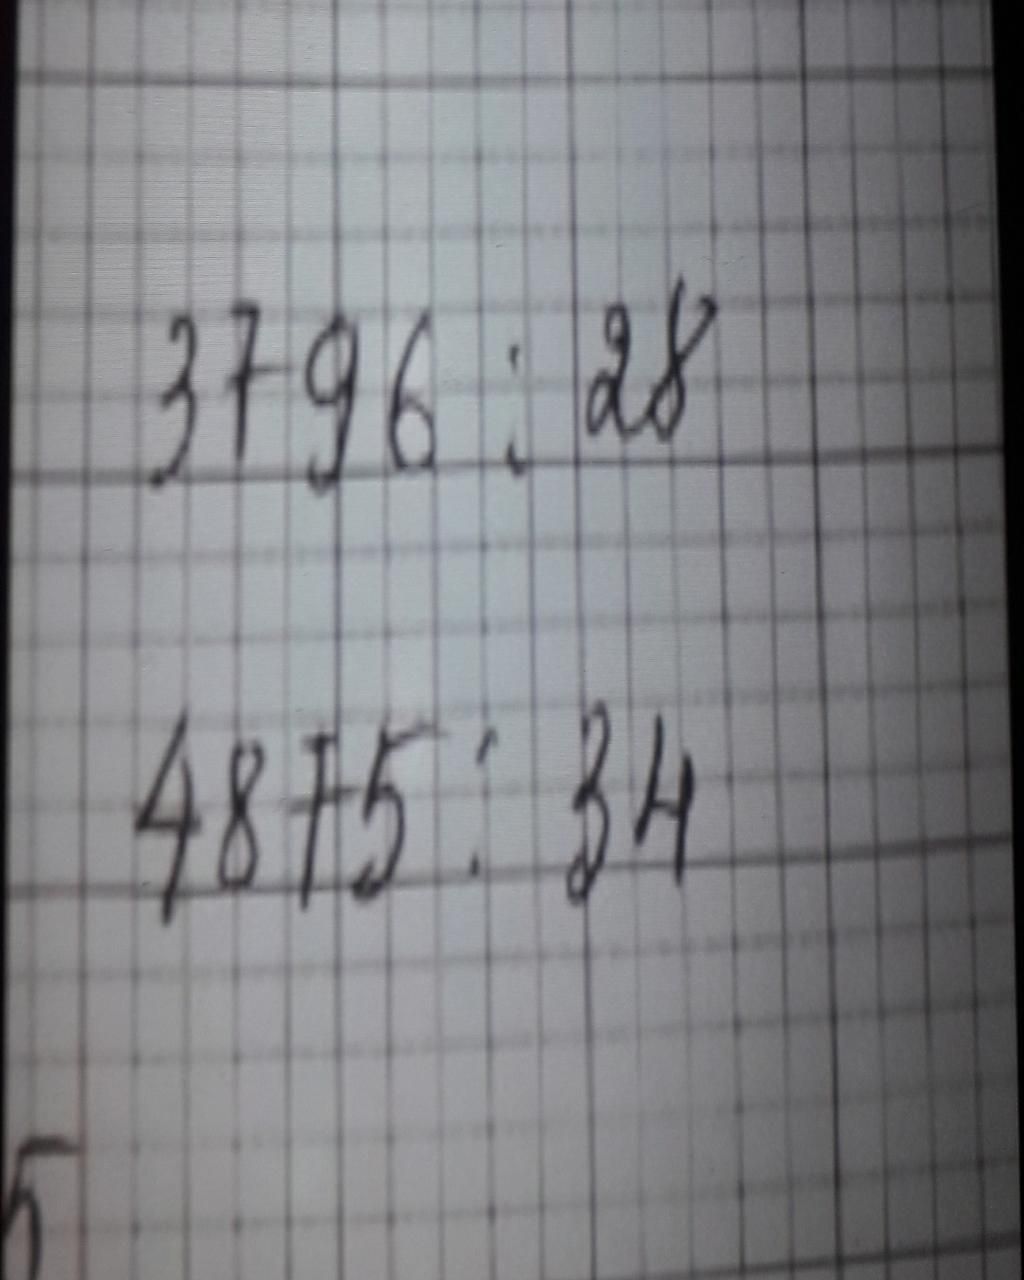 3796 : 28
4875 : 34
5